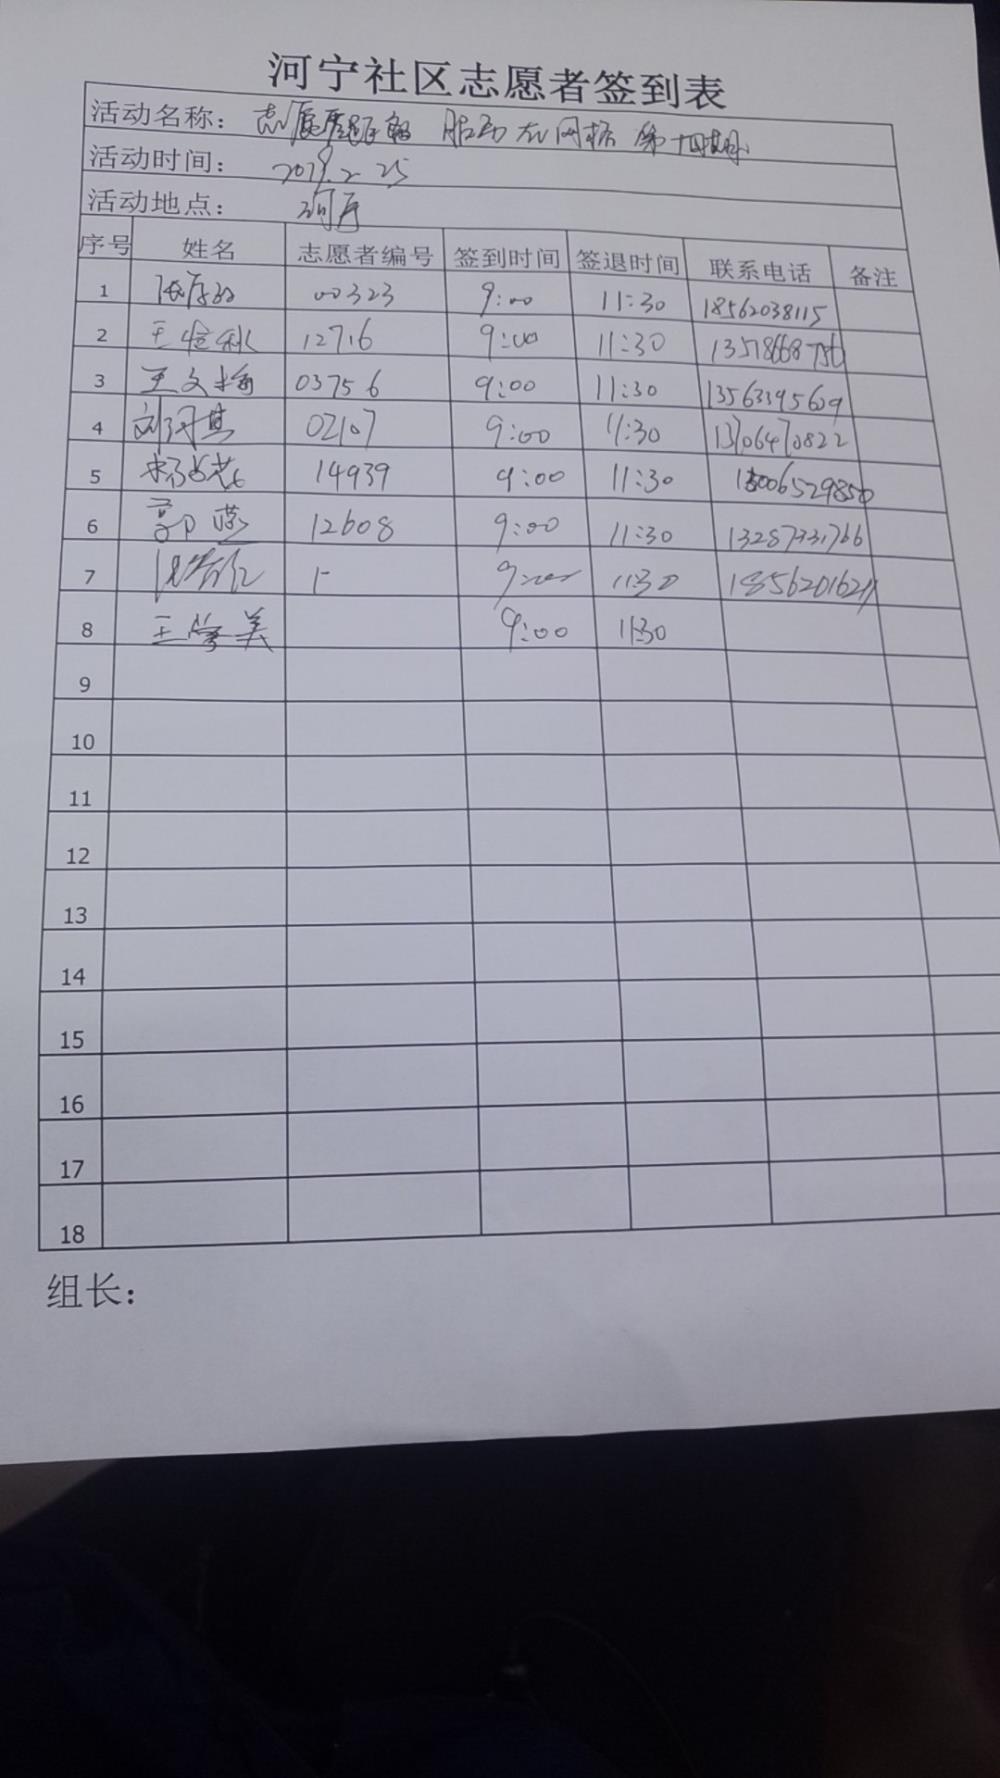 河宁社区志愿者签到表
活动名称：志愿 服务在网格 第十四期
活动时间：2019.2.25
活动地点：河宁
序号 姓名 志愿者编号 签到时间 签退时间 联系电话 备注
1 00323 9:00 11:30 18562038115
2 王 秋 12716 9:00 11:30
3 王文梅 03756 9:00 11:30 13563395609
4 刘河其 02107 9:00 11:30 13706470822
5 杨 14939 9:00 11:30 18006529850
6 郭燕 12608 9:00 11:30 13287331766
7 9:00 11:30
8 王学美 9:00 11:30
9
10
11
12
13
14
15
16
17
18
组长：